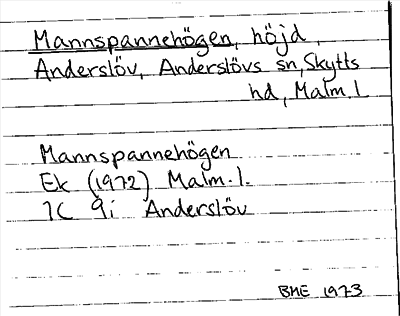 Mannspannehögen, höjd,
Anderslöv, Anderslövs sn, Skytts
hd, Malm. l
Mannspannehögen
Ek (1972) Malm. l.
1C 9i Anderslöv
BME 1973